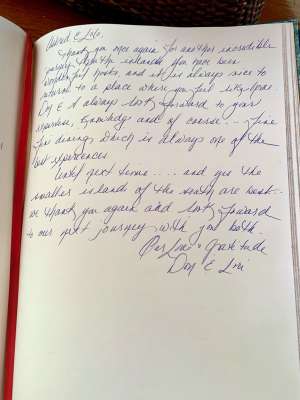 & Lola,
Thank you once again for another incredible
journey the islands. You have been
wonderful hosts, and it is always nice to
return to a place where you feel like home.
& I always look forward to your
experience, knowledge and of course... fine
fine dining, which is always one of the
best experiences
Until next time.... and yes the
smaller islands of the south are best
we thank you again and look forward
to our next journey with you both..
Our Love & Gratitude
Don &